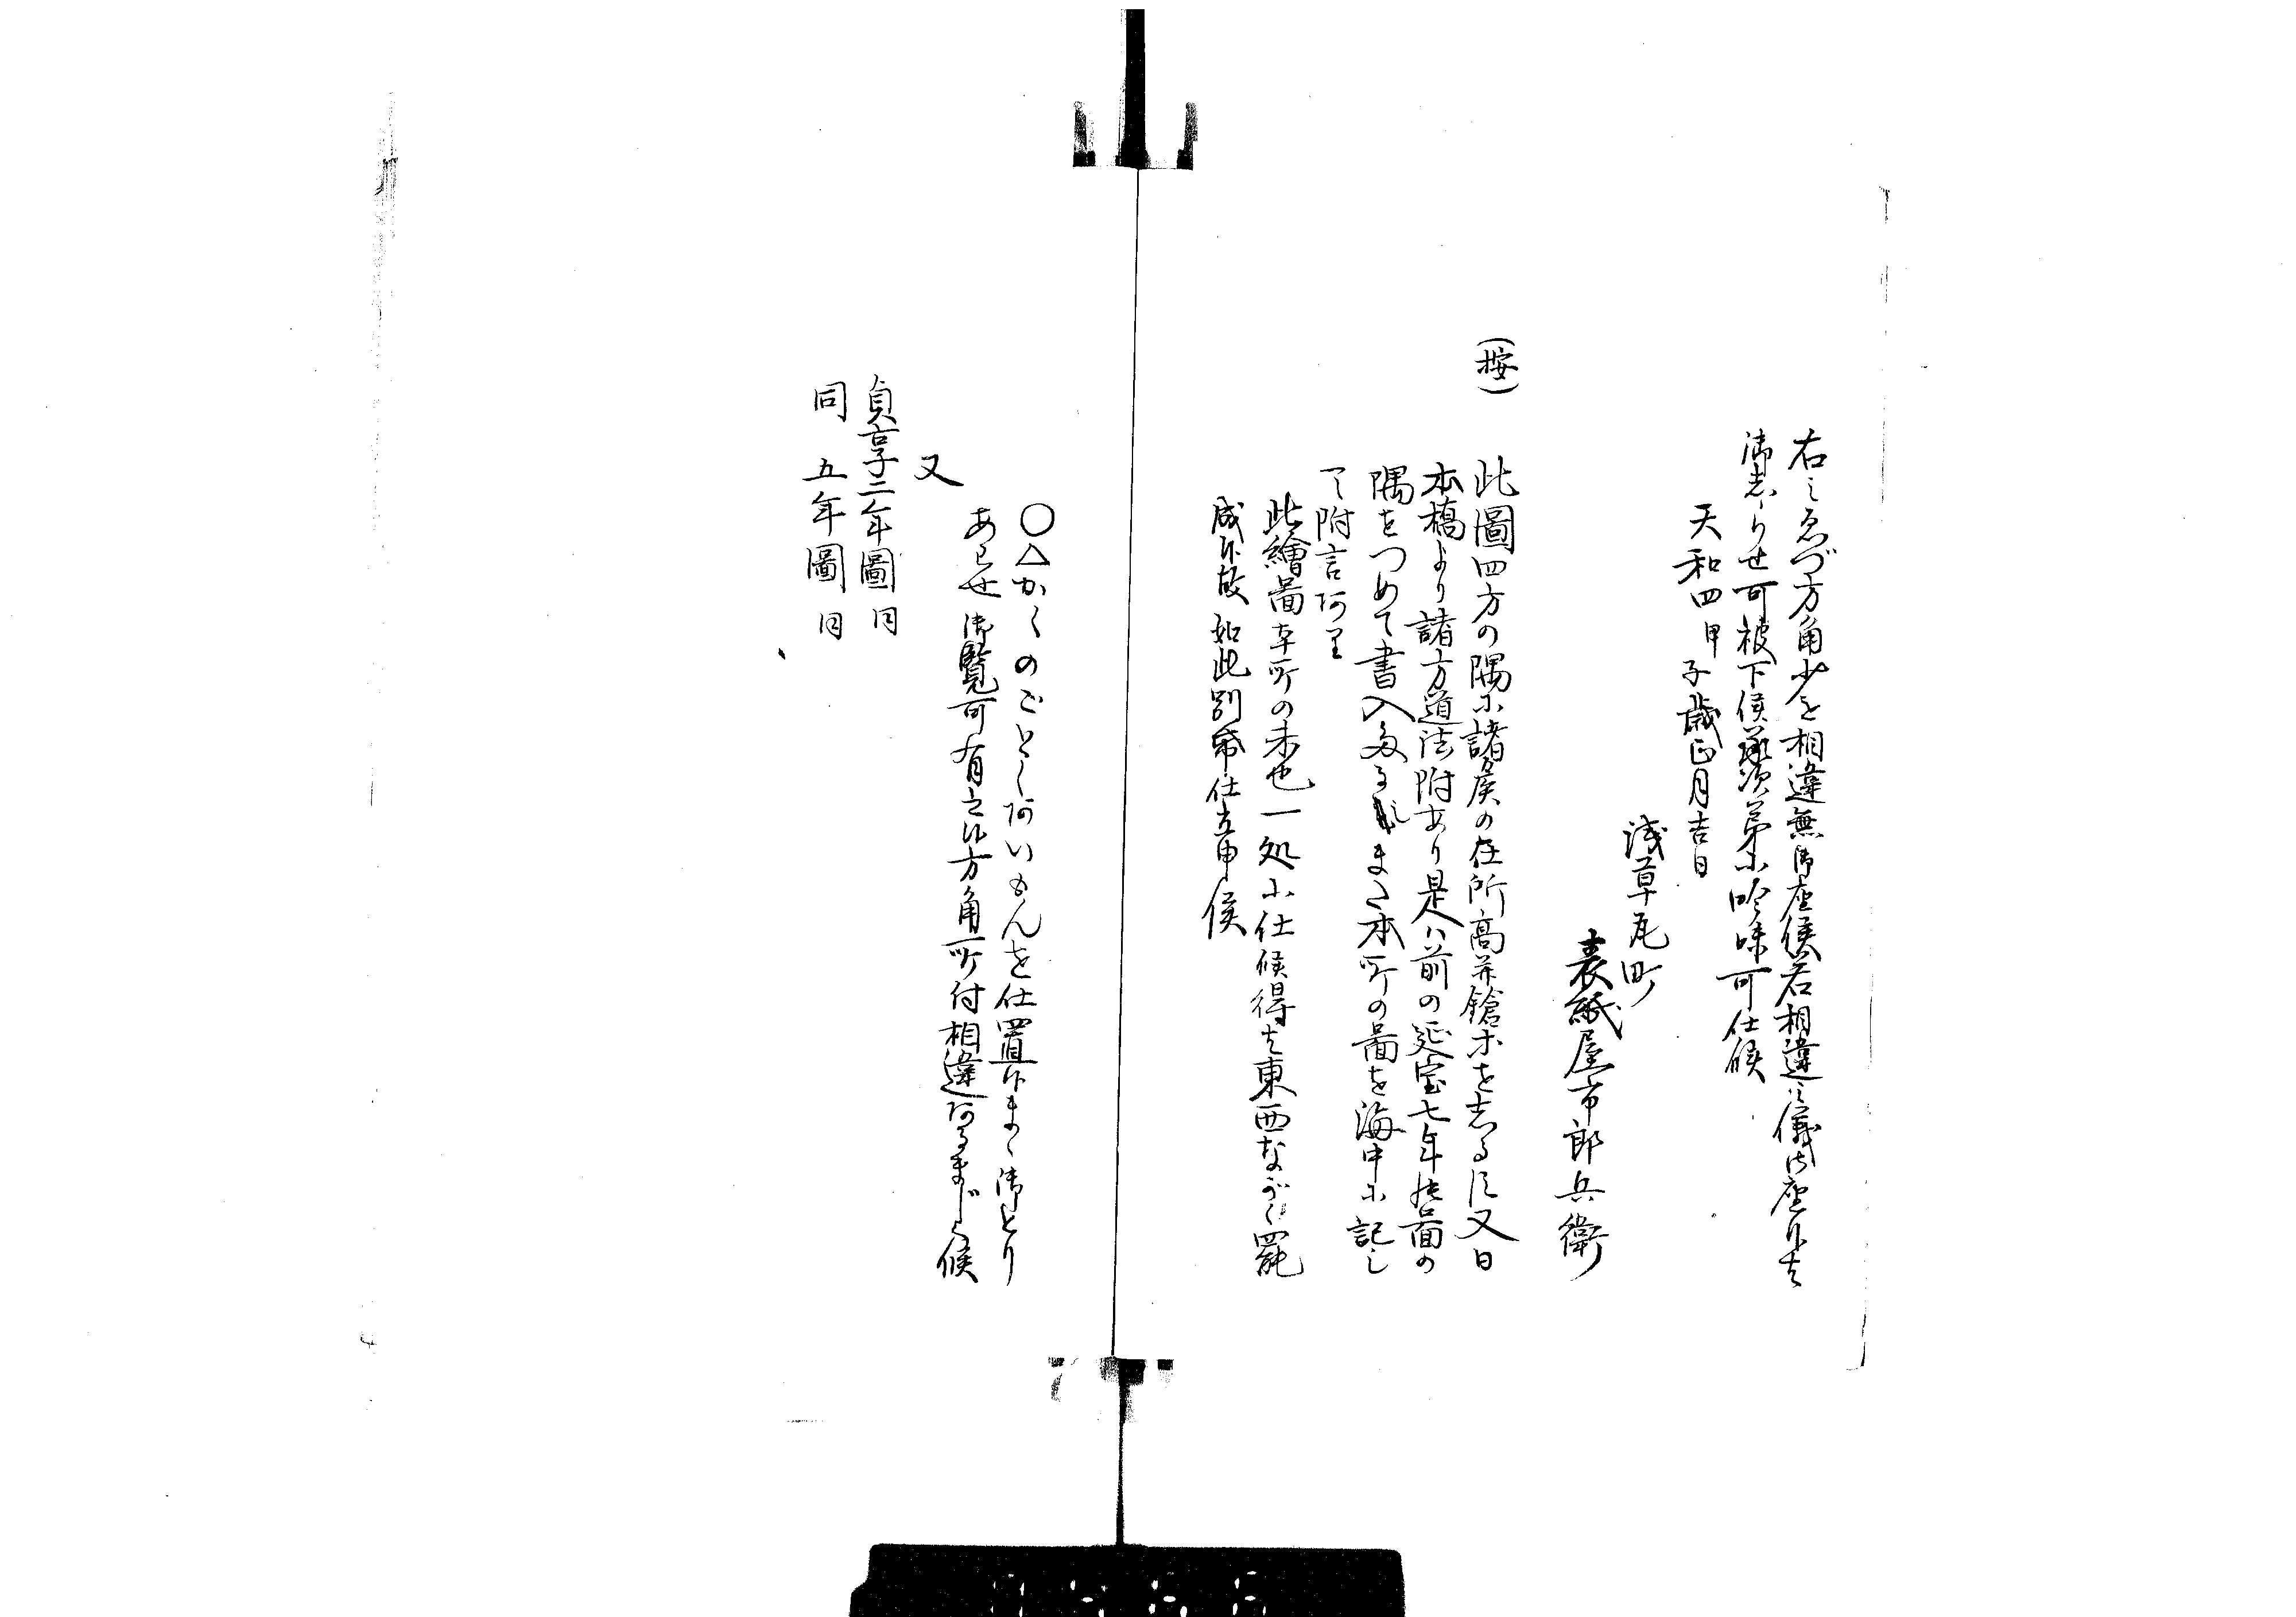 右之ゑづ方角少も相違無御座候若相違之儀御座候は
御志らせ可被下候承次第に吟味可仕候
天和四甲子歳正月吉日
浅草瓦町
表紙屋市郎兵衛
(按)
此圖四方の隅に諸侯の在所高并鎗印を志るす又日
本橋より諸方道法附あり是ハ前の延宝七年板圖の
隅をつめて書入たるなり また本所の圖を海中に記し
て附言あり
此繪圖本所の末也一処に仕候得は東西ながく罷
成候故如此別紙仕立申候
○△かくのごとくあいもんを仕置候まゝ御とり
あわせ御覧可有之候方角所付相違あるまじく候
又
貞享二年圖 同
同 五年圖 同